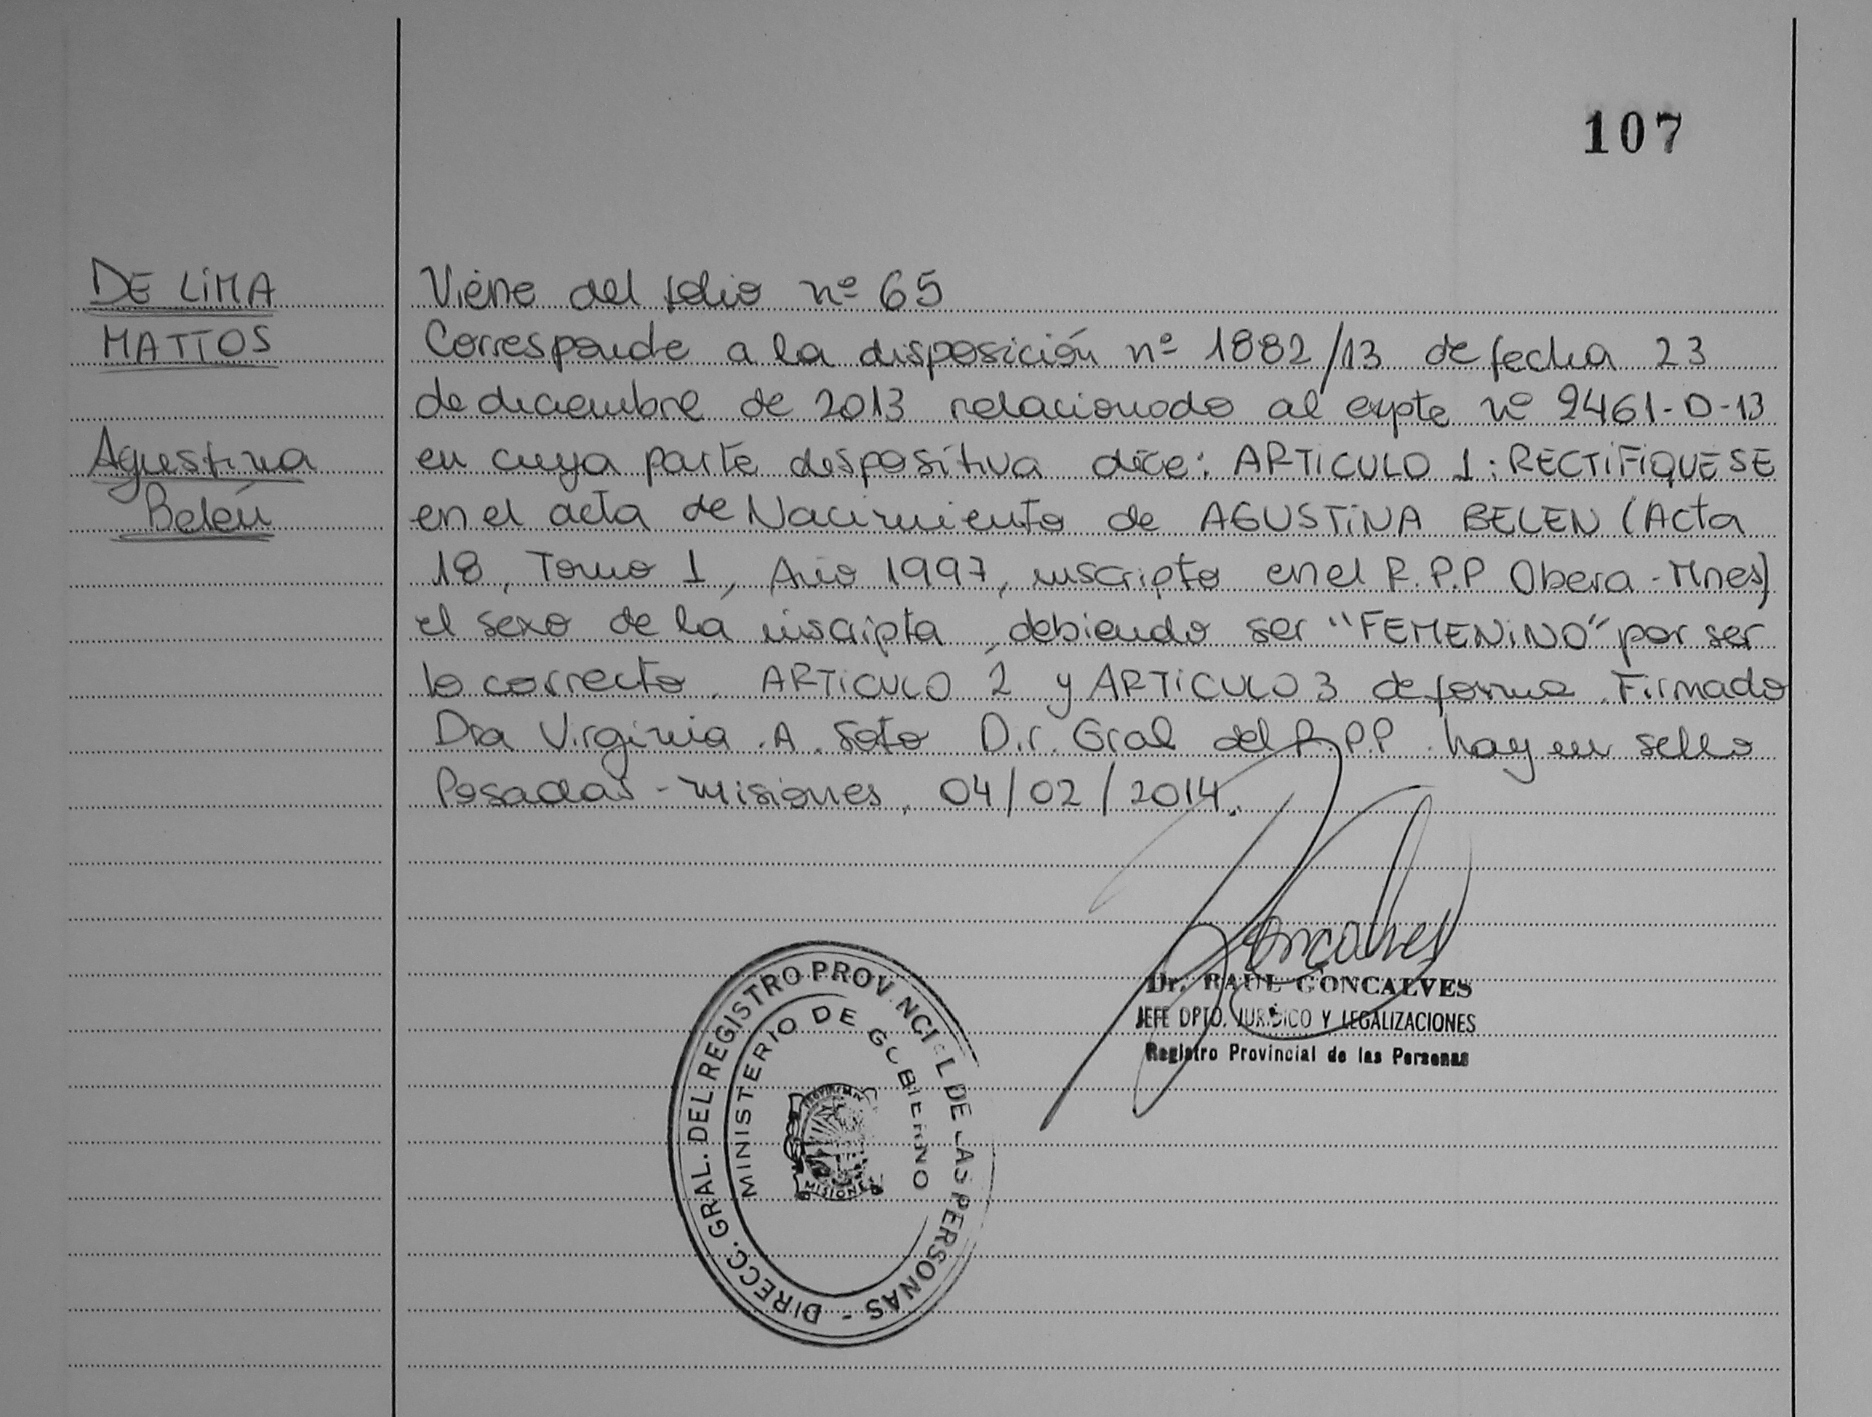 107
DE LIMA
MATTOS
Agustina
Belén
Viene del folio nº 65
Corresponde a la disposición nº 1882/13 de fecha 23
de diciembre de 2013 relacionado al expte nº 9461-D-13
en cuya parte despositiva dice: ARTICULO 1: RECTIFIQUESE
en el acta de Nacimiento de AGUSTINA BELEN (Acta
18, Tomo 1, Año 1997, inscripto en el R.P.P Obera - Mnes)
el sexo de la inscripta, debiendo ser "FEMENINO" por ser
lo correcto. ARTICULO 2 y ARTICULO 3 de forma. Firmado
Dra Virginia .A. Soto Dir. Gral del R.P.P. hay un sello
Posadas - Misiones, 04/02/2014.
Goncalves
Dr. RAUL GONCALVES
JEFE DPTO. JURIDICO Y LEGALIZACIONES
Registro Provincial de las Personas
DIRECC. GRAL. DEL REGISTRO PROVINCIAL DE LAS PERSONAS -
MINISTERIO DE GOBIERNO
MISIONES